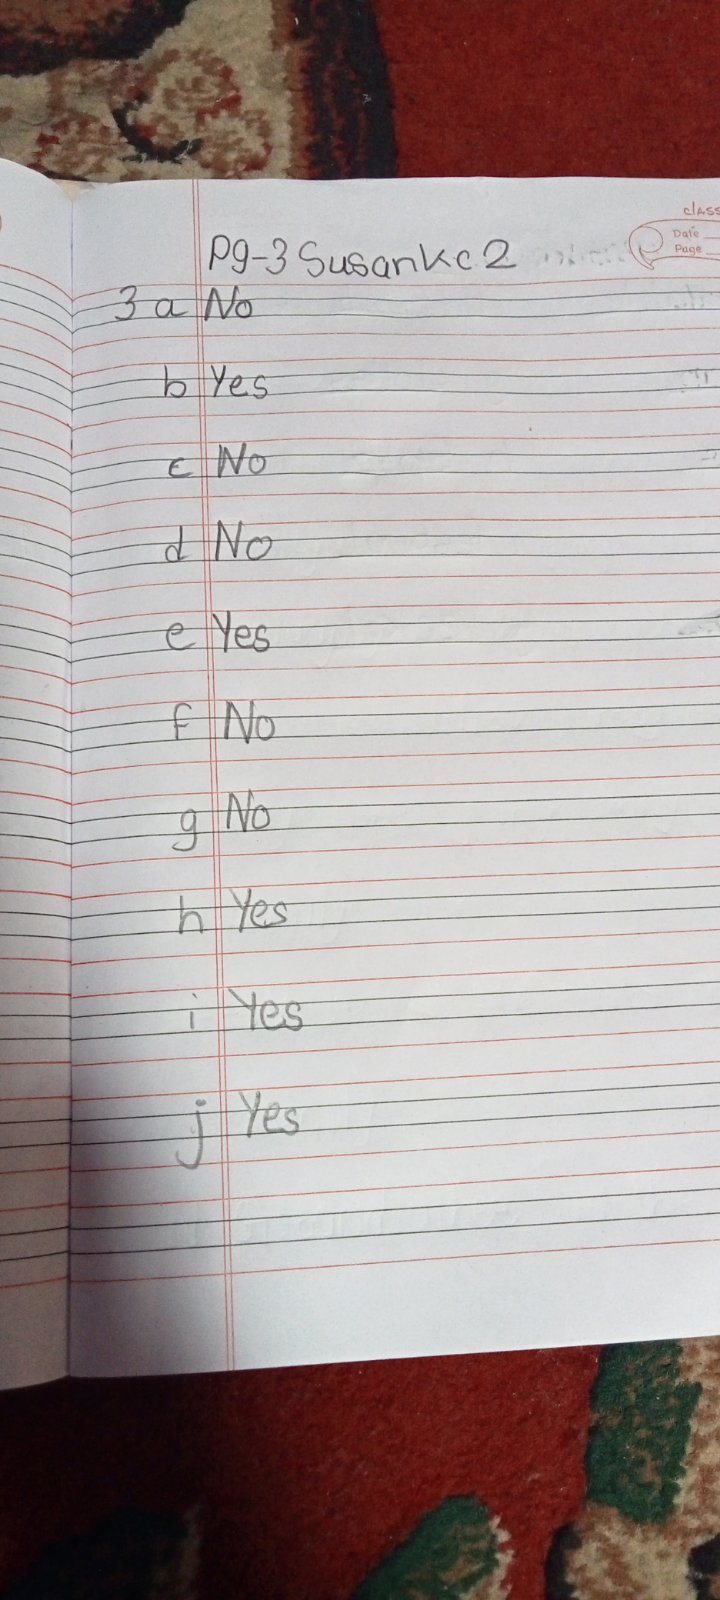 CLASS
Date
Page
Pg-3 Susan Kc 2
3 a No
b Yes
c No
d No
e Yes
f No
g No
h Yes
i Yes
j Yes